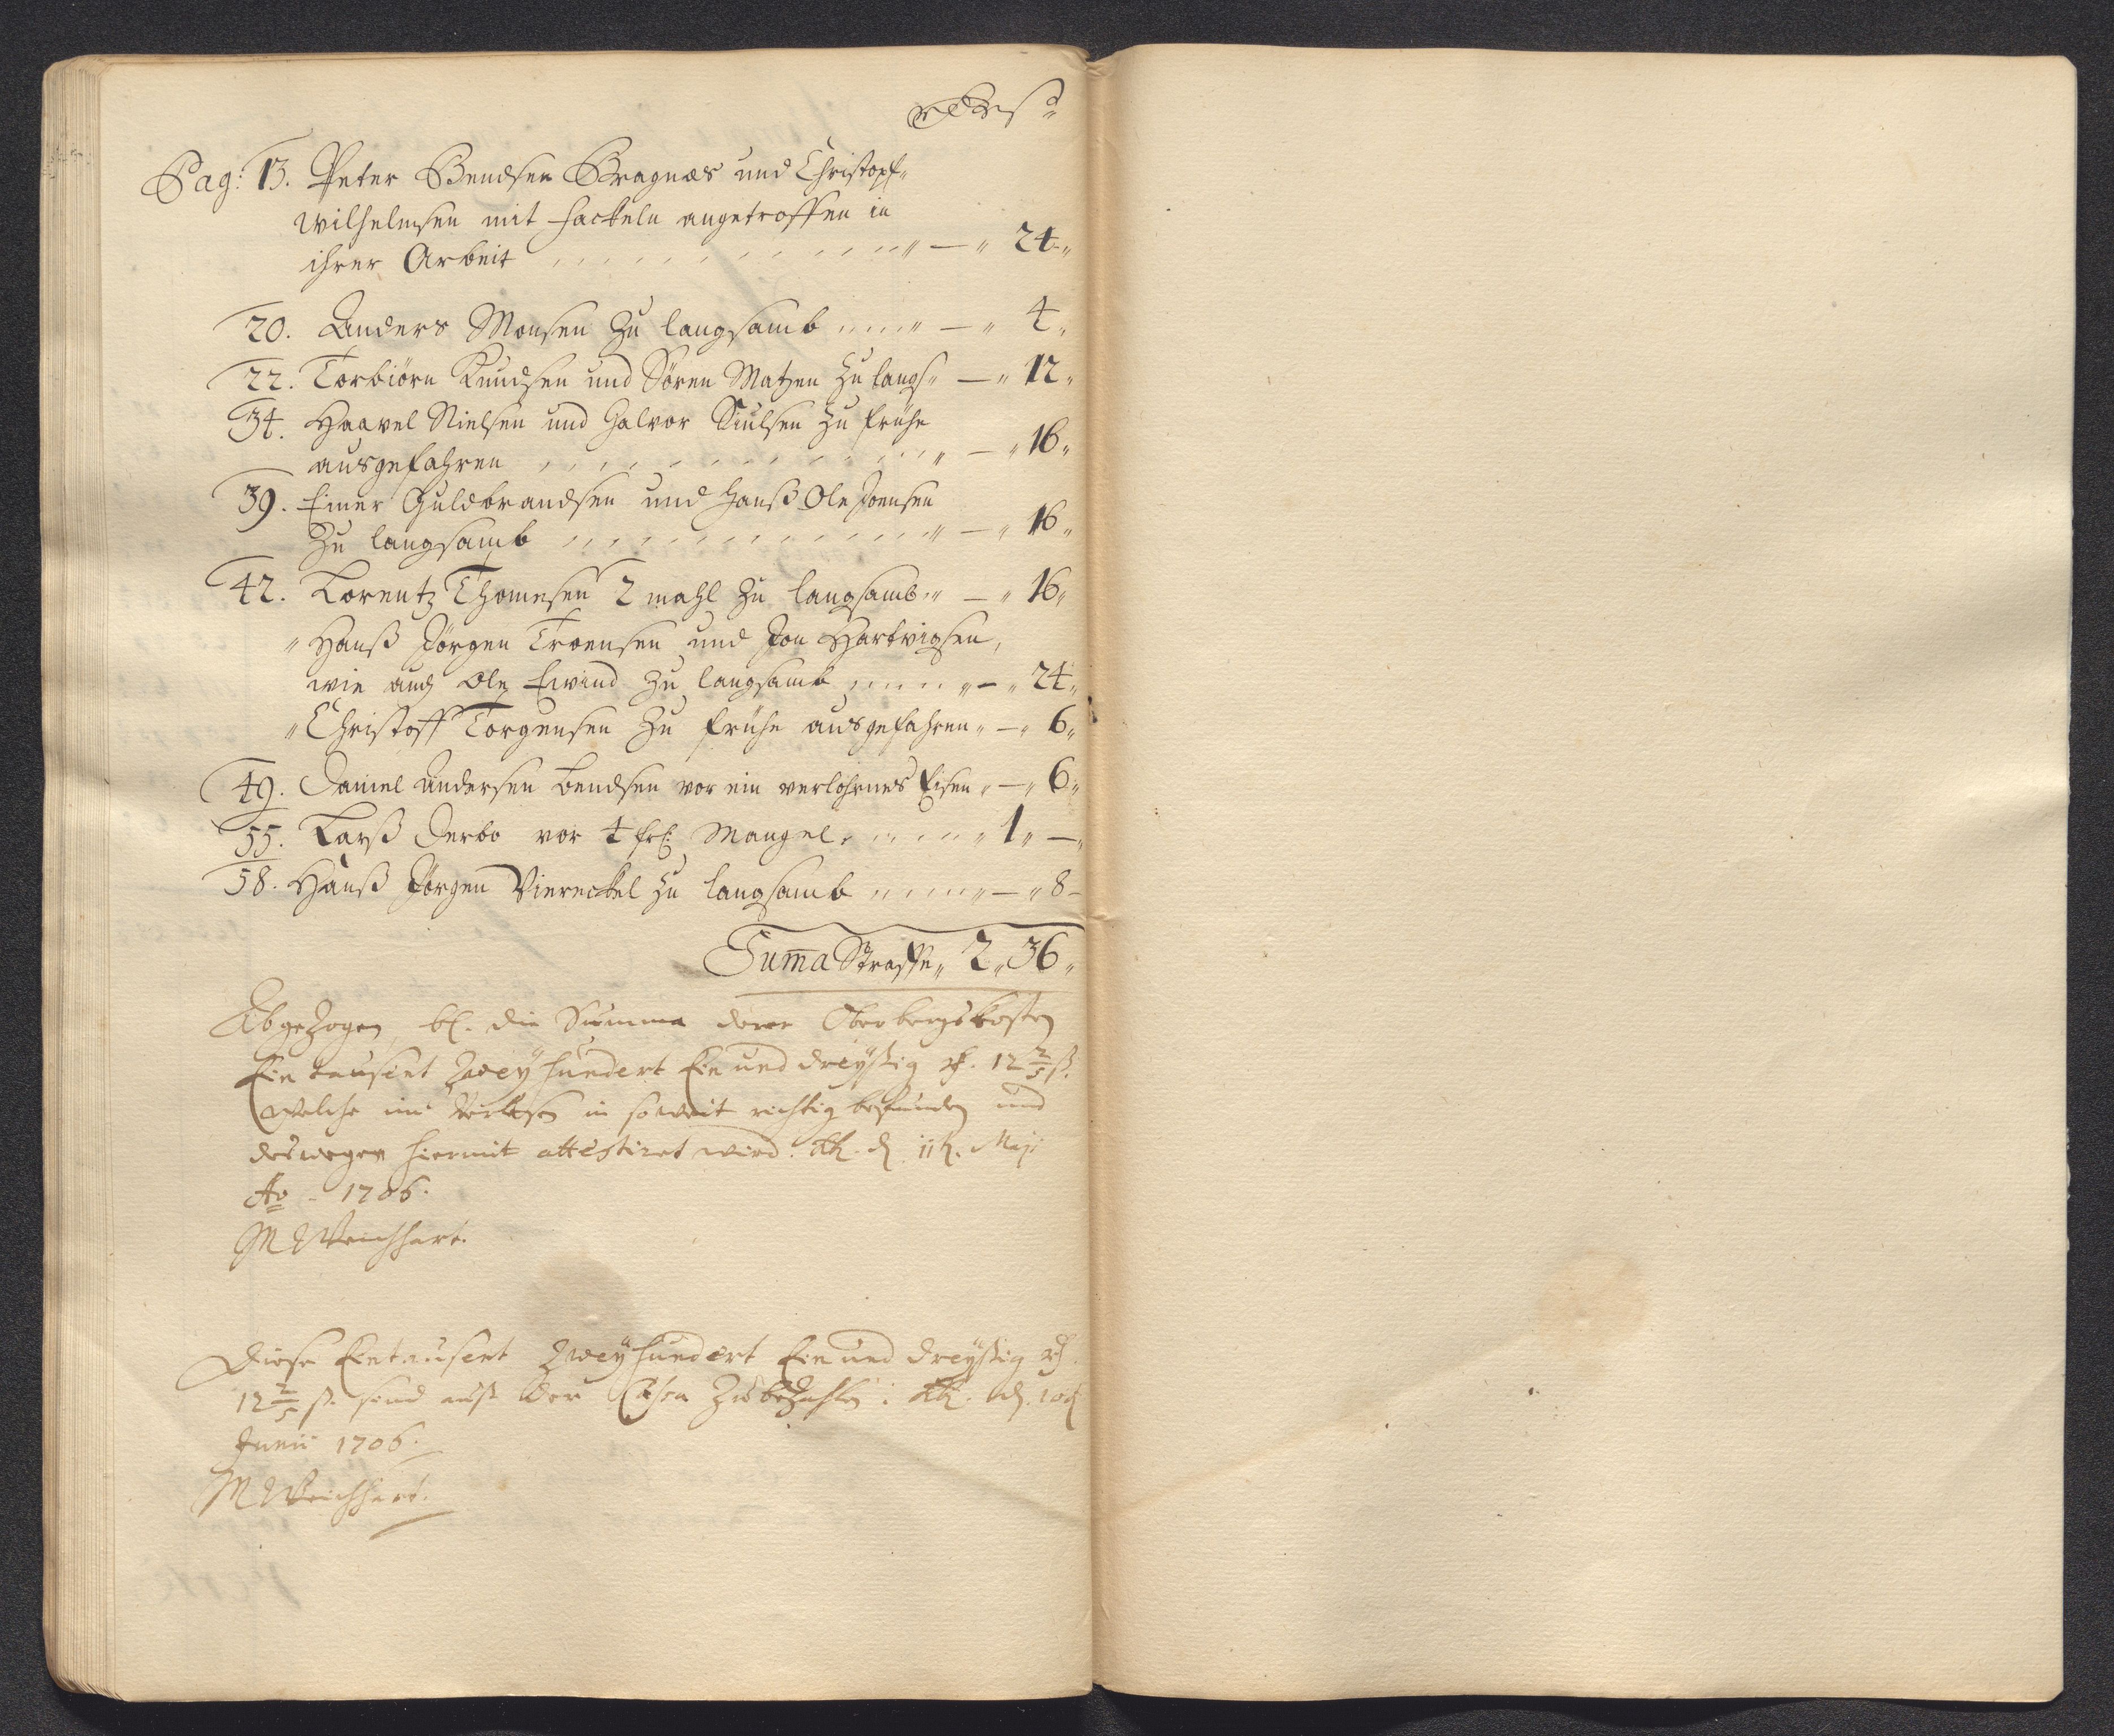 Pag: 13. Peter Bendsen Bragnæs und Christopf
Wilhelmsen mit Fackeln angetroffen in
ihrer Arbeit „ — „ 24 „
20. Anders Monsen zu langsamb „ — „ 4 „
22. Torbiörn Knudsen und Sören Matzen zu langs „ — „ 12 „
34. Haavel Nielsen und Halvor Siulsen zu frühe
ausgefahren „ — „ 16 „
39. Einer Guldbrandsen und Hanß Ole Joensen
zu langsamb „ — „ 16 „
42. Lorentz Thomesen 2 mahl zu langsamb „ — „ 16 „
„ Hanß Jörgen Troensen und Jon Hartvigsen,
wie auch Ole Eivind zu langsamb „ — „ 24 „
„ Christoff Torgensen zu frühe ausgefahren „ — „ 6 „
49. Daniel Andersen Bendsen vor ein verlohrnes Eisen „ — „ 6 „
55. Larß Derbo vor 4 Mangel „ 1 „ —
58. Hanß Jörgen Viereckel zu langsamb „ — „ 8 —
Suma Straffe „ 2 „ 36 „
Abgezogen, bl. die Summa derer Oberbergskosten
Ein tausent Zwey hundert Ein und dreyßig 12 2/5 ß.
Welche im Verlesen in soweit richtig befunden und
deswegen hiermit attestiret wird. d 11 Maji
Ao 1706.
M Weichhart.
Diese Ein tausent Zwey hundert Ein und dreyßig
12 2/5 ß. sind auß der Cassa zu bezahlen: d 10
Junii 1706.
M Weichhart.